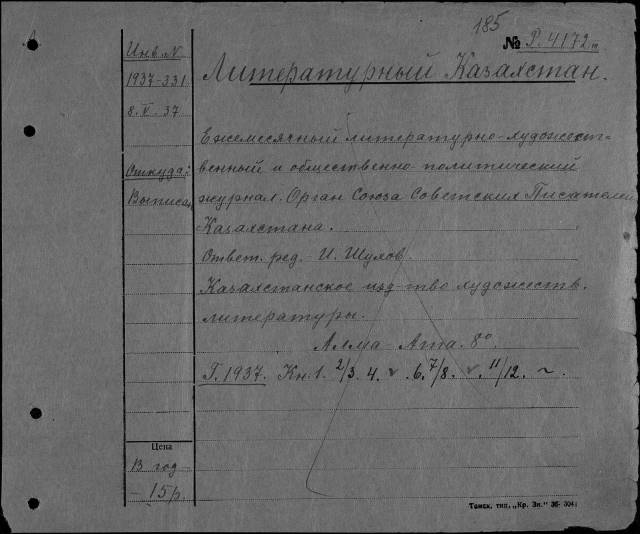 185
№ Р. 4172
Инв. №
1937-331
8. V. 37
Откуда:
Выписан
Литературный Казахстан.
Ежемесячный литературно-художест-
венный и общественно-политический
журнал. Орган Союза Советских Писателей
Казахстана.
Ответ. ред. И. Шухов.
Казахстанское изд-тво художеств.
литературы.
Алма-Ата. 8º
Г. 1937. Кн. 1. 2/3. 4. v. 6. 7/8. v. 11/12. ~.
Цена
В год
- 15 р.
Томск. тип. „Кр. Зн." 36- 304